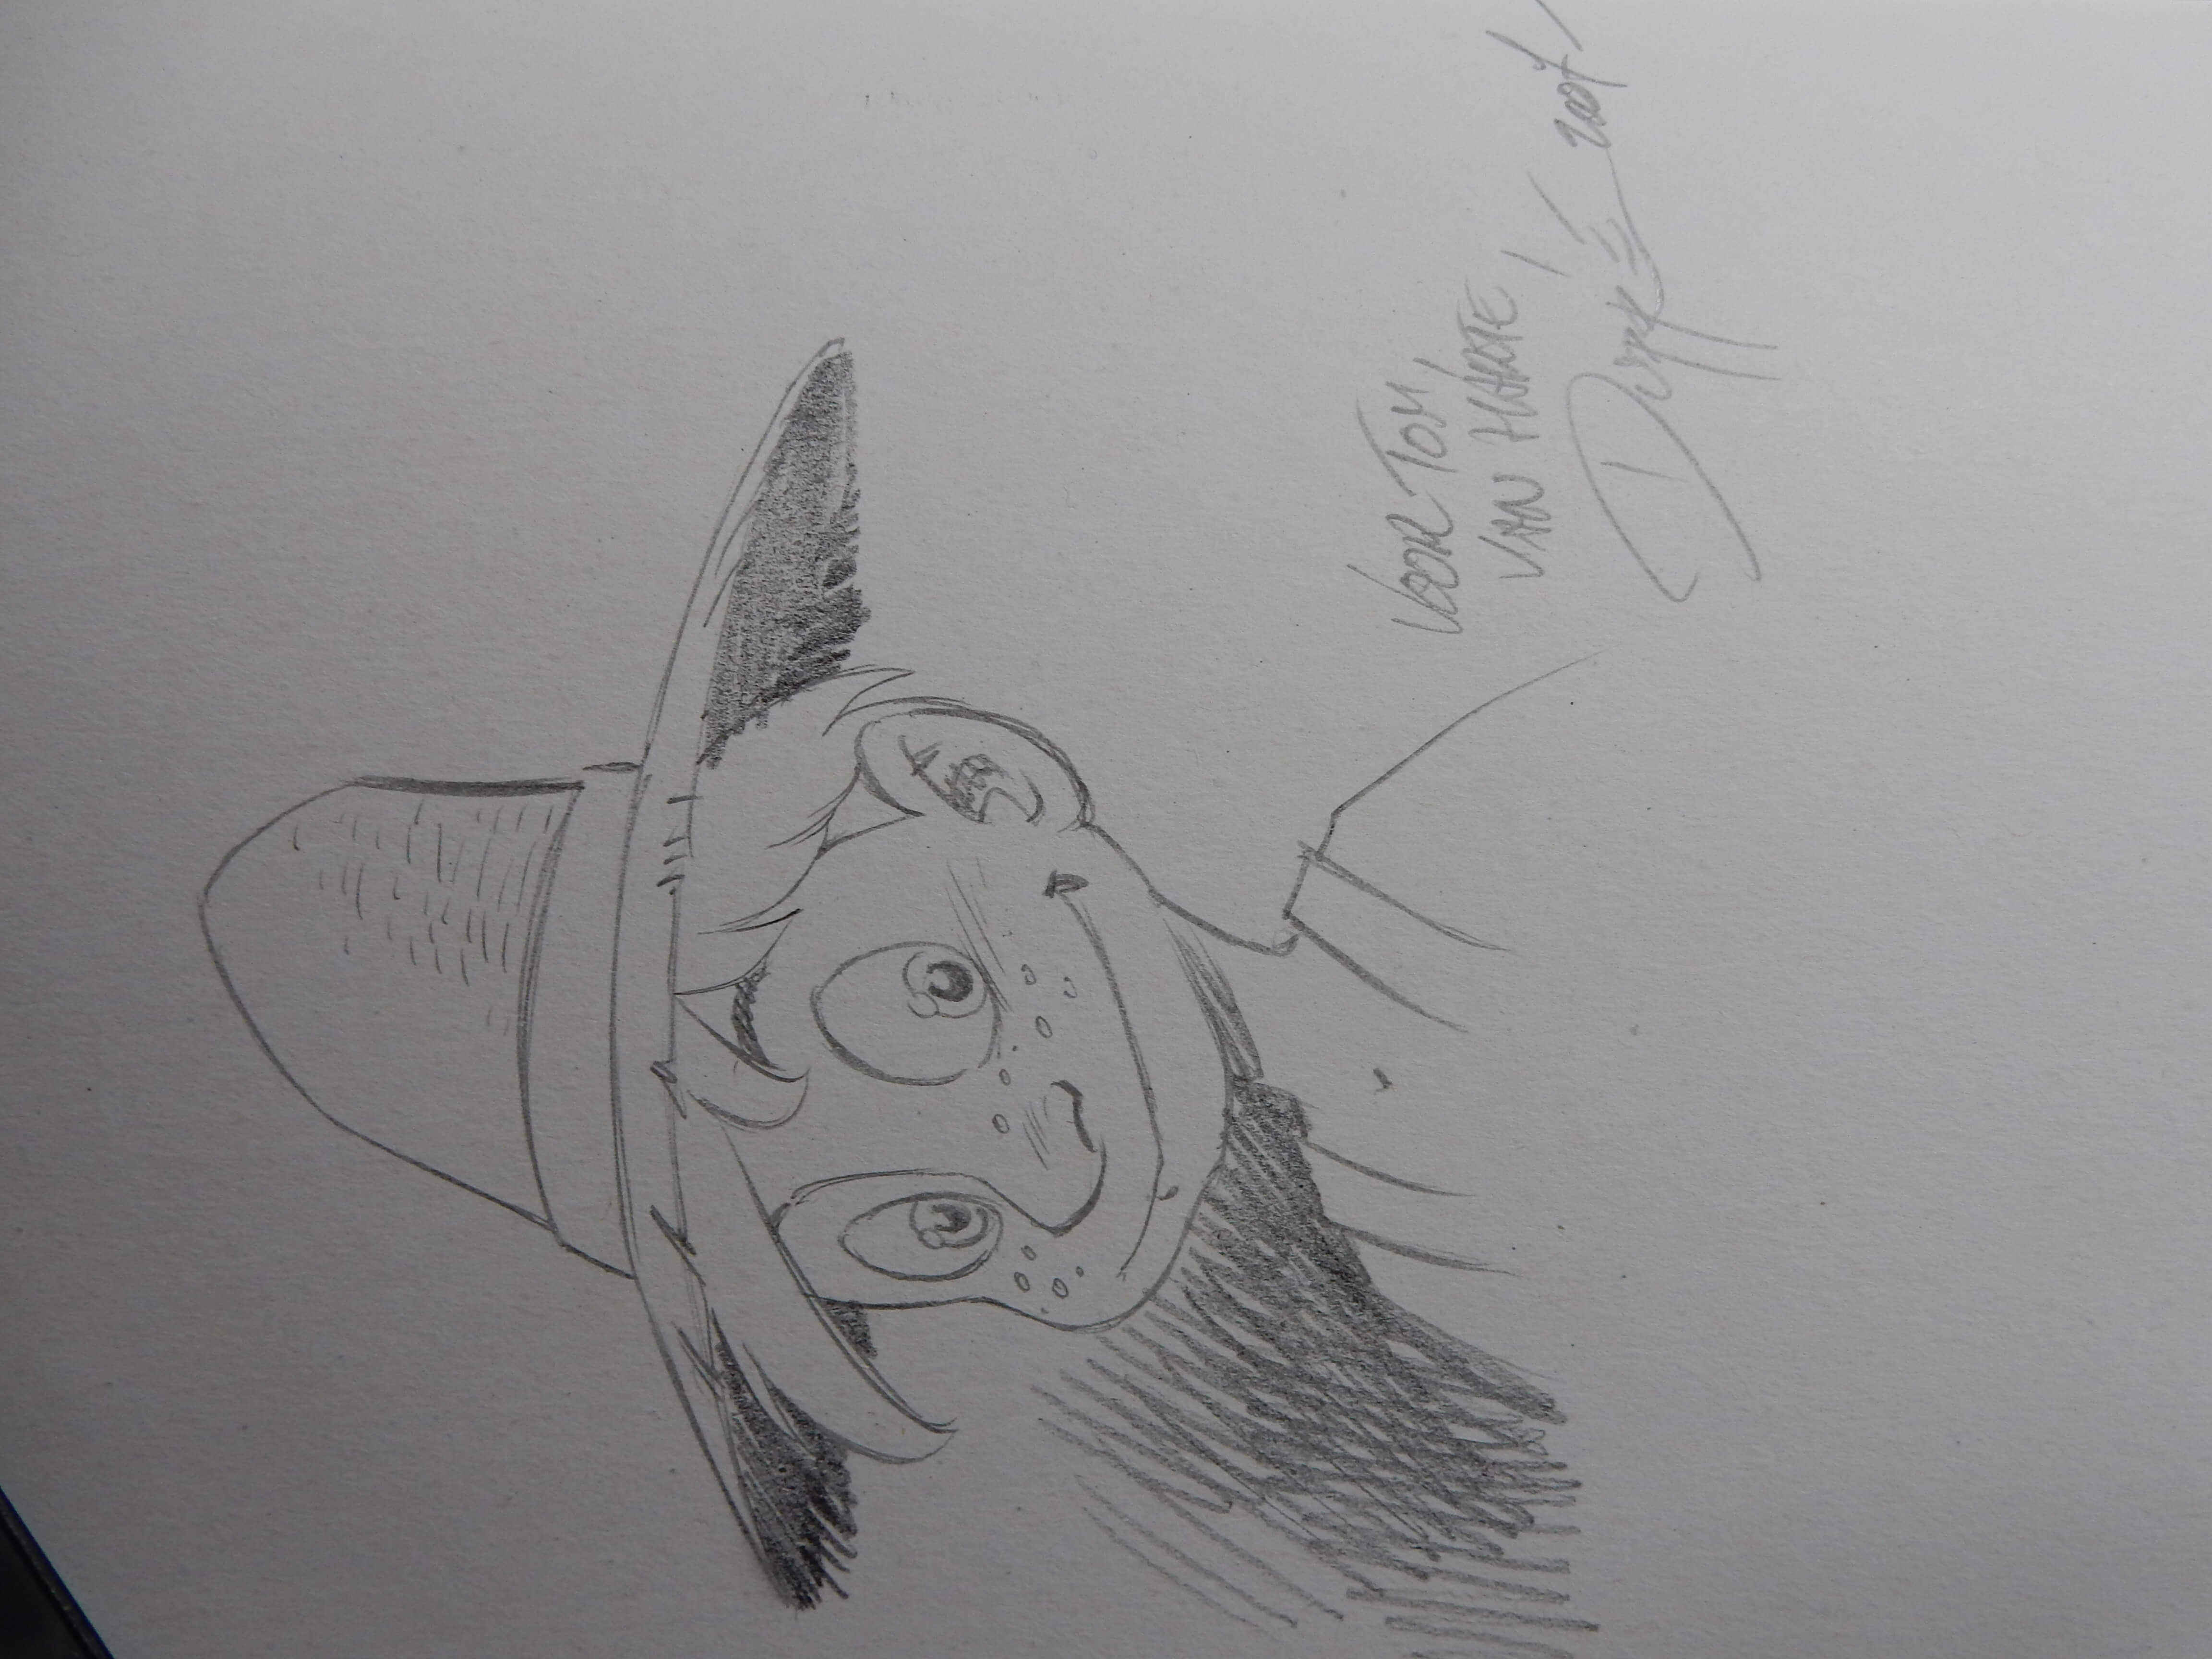 VOOR TOM,
VAN HARTE,
DUPRÉ 2007